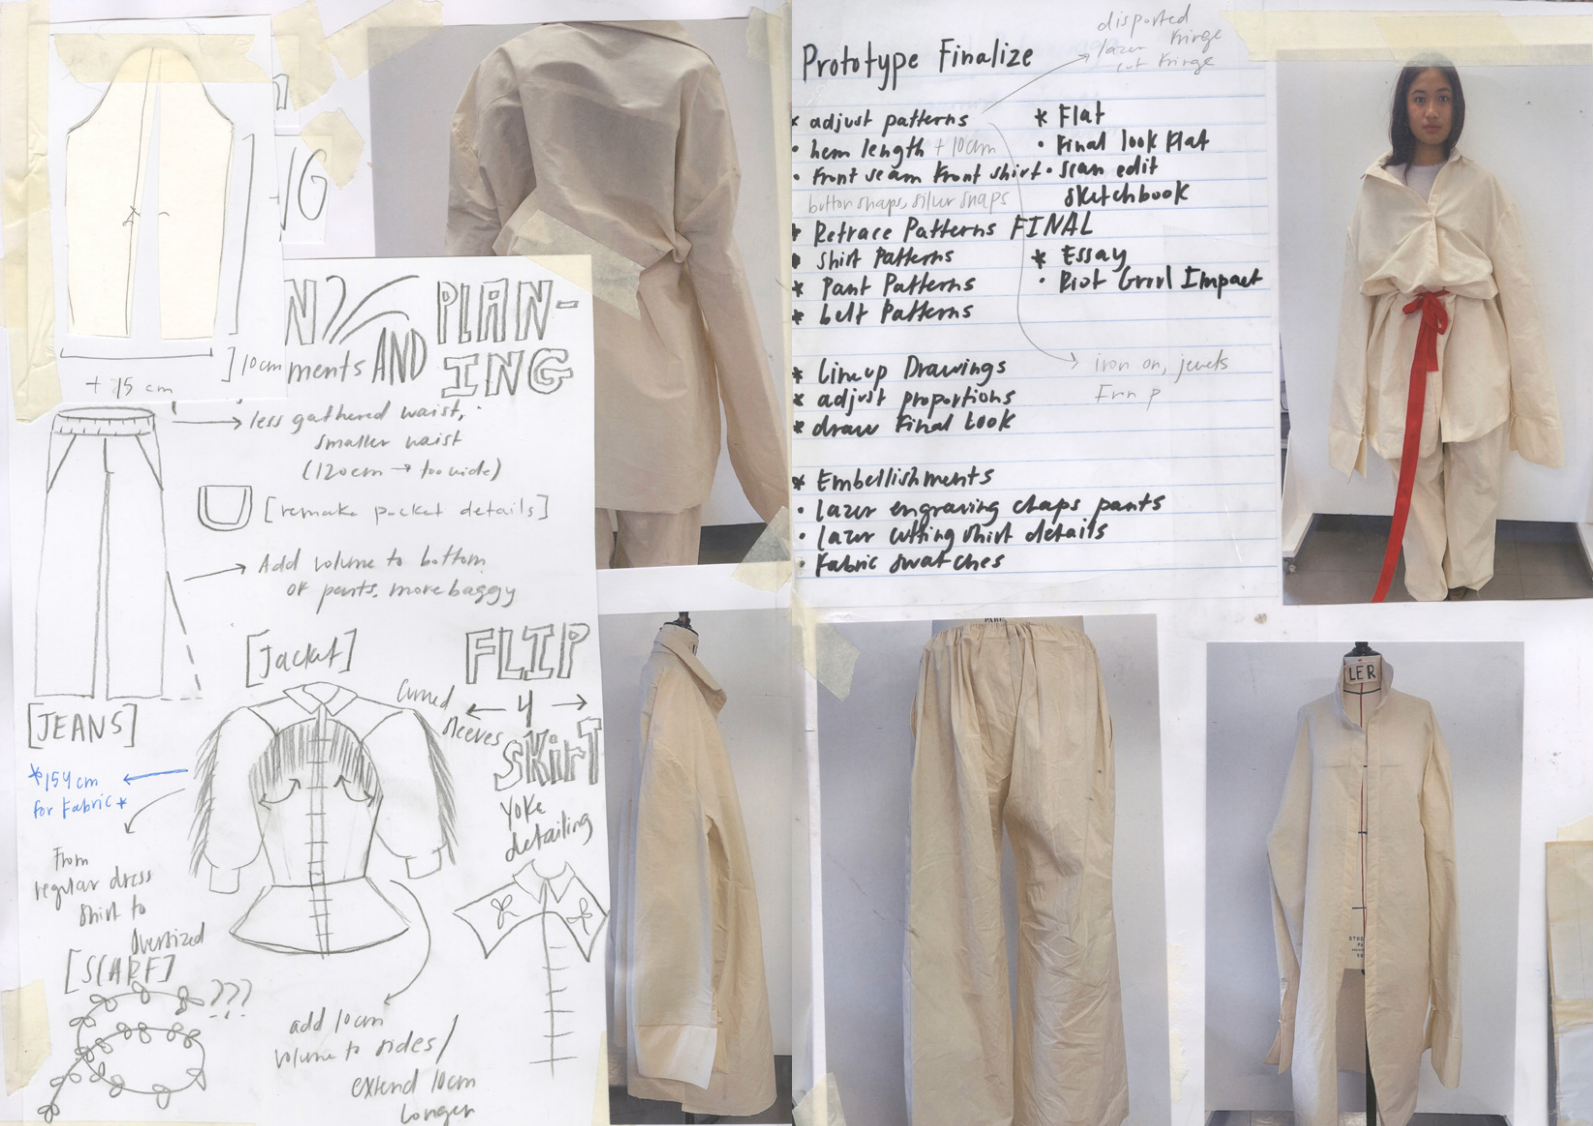 NG
N
PLAN-
ments AND
ING
] 10cm
+ 15 cm
less gathered waist,
smaller waist
(120cm → too wide)
[remake pocket details]
Add volume to bottom
of pants. more baggy
[Jacket]
FLIP
4
SKirT
curved
sleeves
Yoke
detailing
[JEANS]
*154cm
for Fabric*
From
regular dress
shirt to
oversized
[SCARF]
???
add 10cm
volume to sides/
extend 10cm
longer
Prototype Finalize
fringe
lazer
cut fringe
* adjust patterns
• hem length +10cm
• front seam front shirt
button snaps, silver snaps
* Retrace Patterns FINAL
• Shirt Patterns
* Pant Patterns
* belt Patterns
* Flat
• Final look Flat
• Scan edit
sketchbook
* Essay
• Riot Grrrl Impact
* Lineup Drawings
* adjust proportions
* draw Final Look
iron on, jewels
* Embellishments
• lazer engraving chaps pants
• lazer cutting shirt details
• Fabric swatches
LER